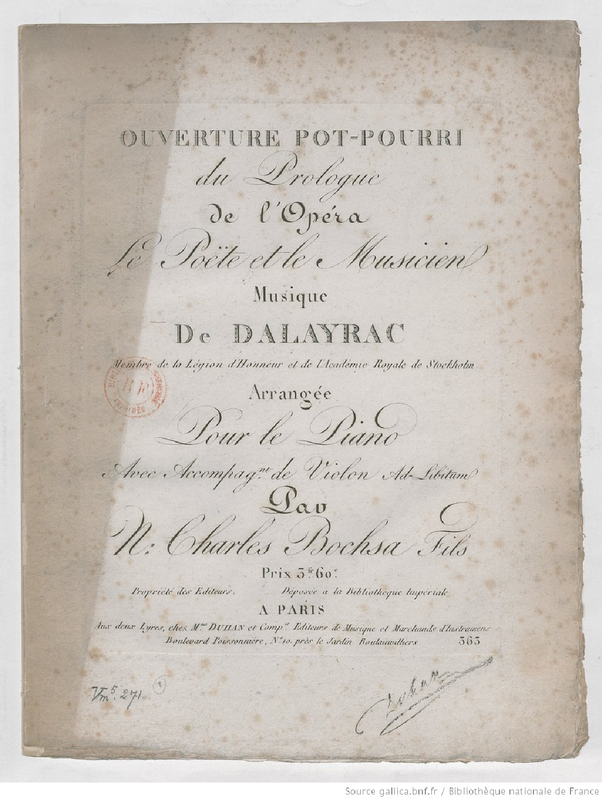 OUVERTURE POT-POURRI
du Prologue
de l'Opéra
Le Poëte et le Musicien
Musique
De DALAYRAC
Membre de la Légion d'Honneur et de l'Académie Royale de Stockholm
Arrangée
Pour le Piano
Avec Accompag.nt de Violon Ad-Libitum
Par
N: Charles Bochsa Fils
Prix 3.# 60.c
Propriété des Editeurs. Déposée à la Bibliothèque Impériale.
A PARIS
Aux deux Lyres, chez M.me DUHAN et Comp.e Editeurs de Musique et Marchands d'Instrumens
Boulevard Poissonnière, N.o 10. près le Jardin Boulainvilliers 363
Vm5. 271. 1
Duhan
Source gallica.bnf.fr / Bibliothèque nationale de France